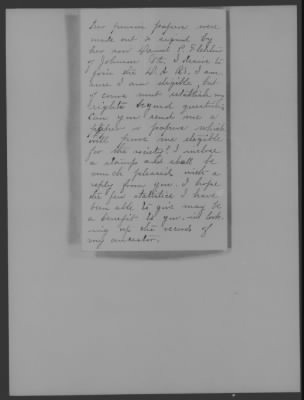 Her pension papers were
made out & signed by
her son Daniel P. Fletcher
of Johnson Vt. I desire to
join the D. A. Rs. I am
sure I am eligible, but
of course must establish my
rights beyond question.
Can you send me a
paper or papers which
will prove me eligible
for the society? I inclose
a stamp and shall be
much pleased with a
reply from you. I hope
the few statistics I have
been able to give may be
a benefit to you in look
ing up the records of
my ancestor.